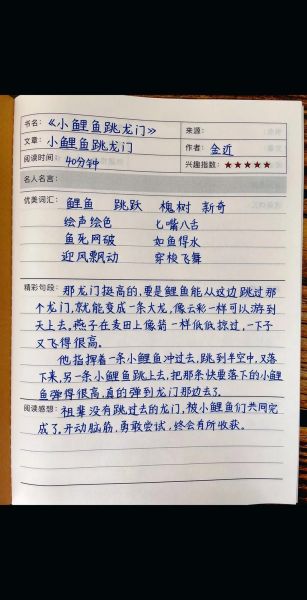 书名：《小鲤鱼跳龙门》 来源：
文章：小鲤鱼跳龙门 作者：金近
阅读时间：40分钟 兴趣指数：★★★★★
名人名言：
优美词汇：鲤鱼 跳跃 槐树 新奇
绘声绘色 七嘴八舌
鱼死网破 如鱼得水
迎风飘动 穿梭飞舞
精彩句段：那龙门挺高的,要是鲤鱼能从这边跳过那
个龙门,就能变成一条大龙,像云彩一样可以游到
天上去,燕子在麦田上像箭一样低低掠过,一下子
又飞得很高。
他指挥着一条小鲤鱼冲过去,跳到半空中,又落
下来,另一条小鲤鱼跳上去,把那条快要落下的小鲤
鱼弹得很高,真的弹到龙门那边去了。
阅读感想：祖辈没有跳过去的龙门,被小鲤鱼们共同完
成了。开动脑筋,勇敢尝试,终会有所收获。